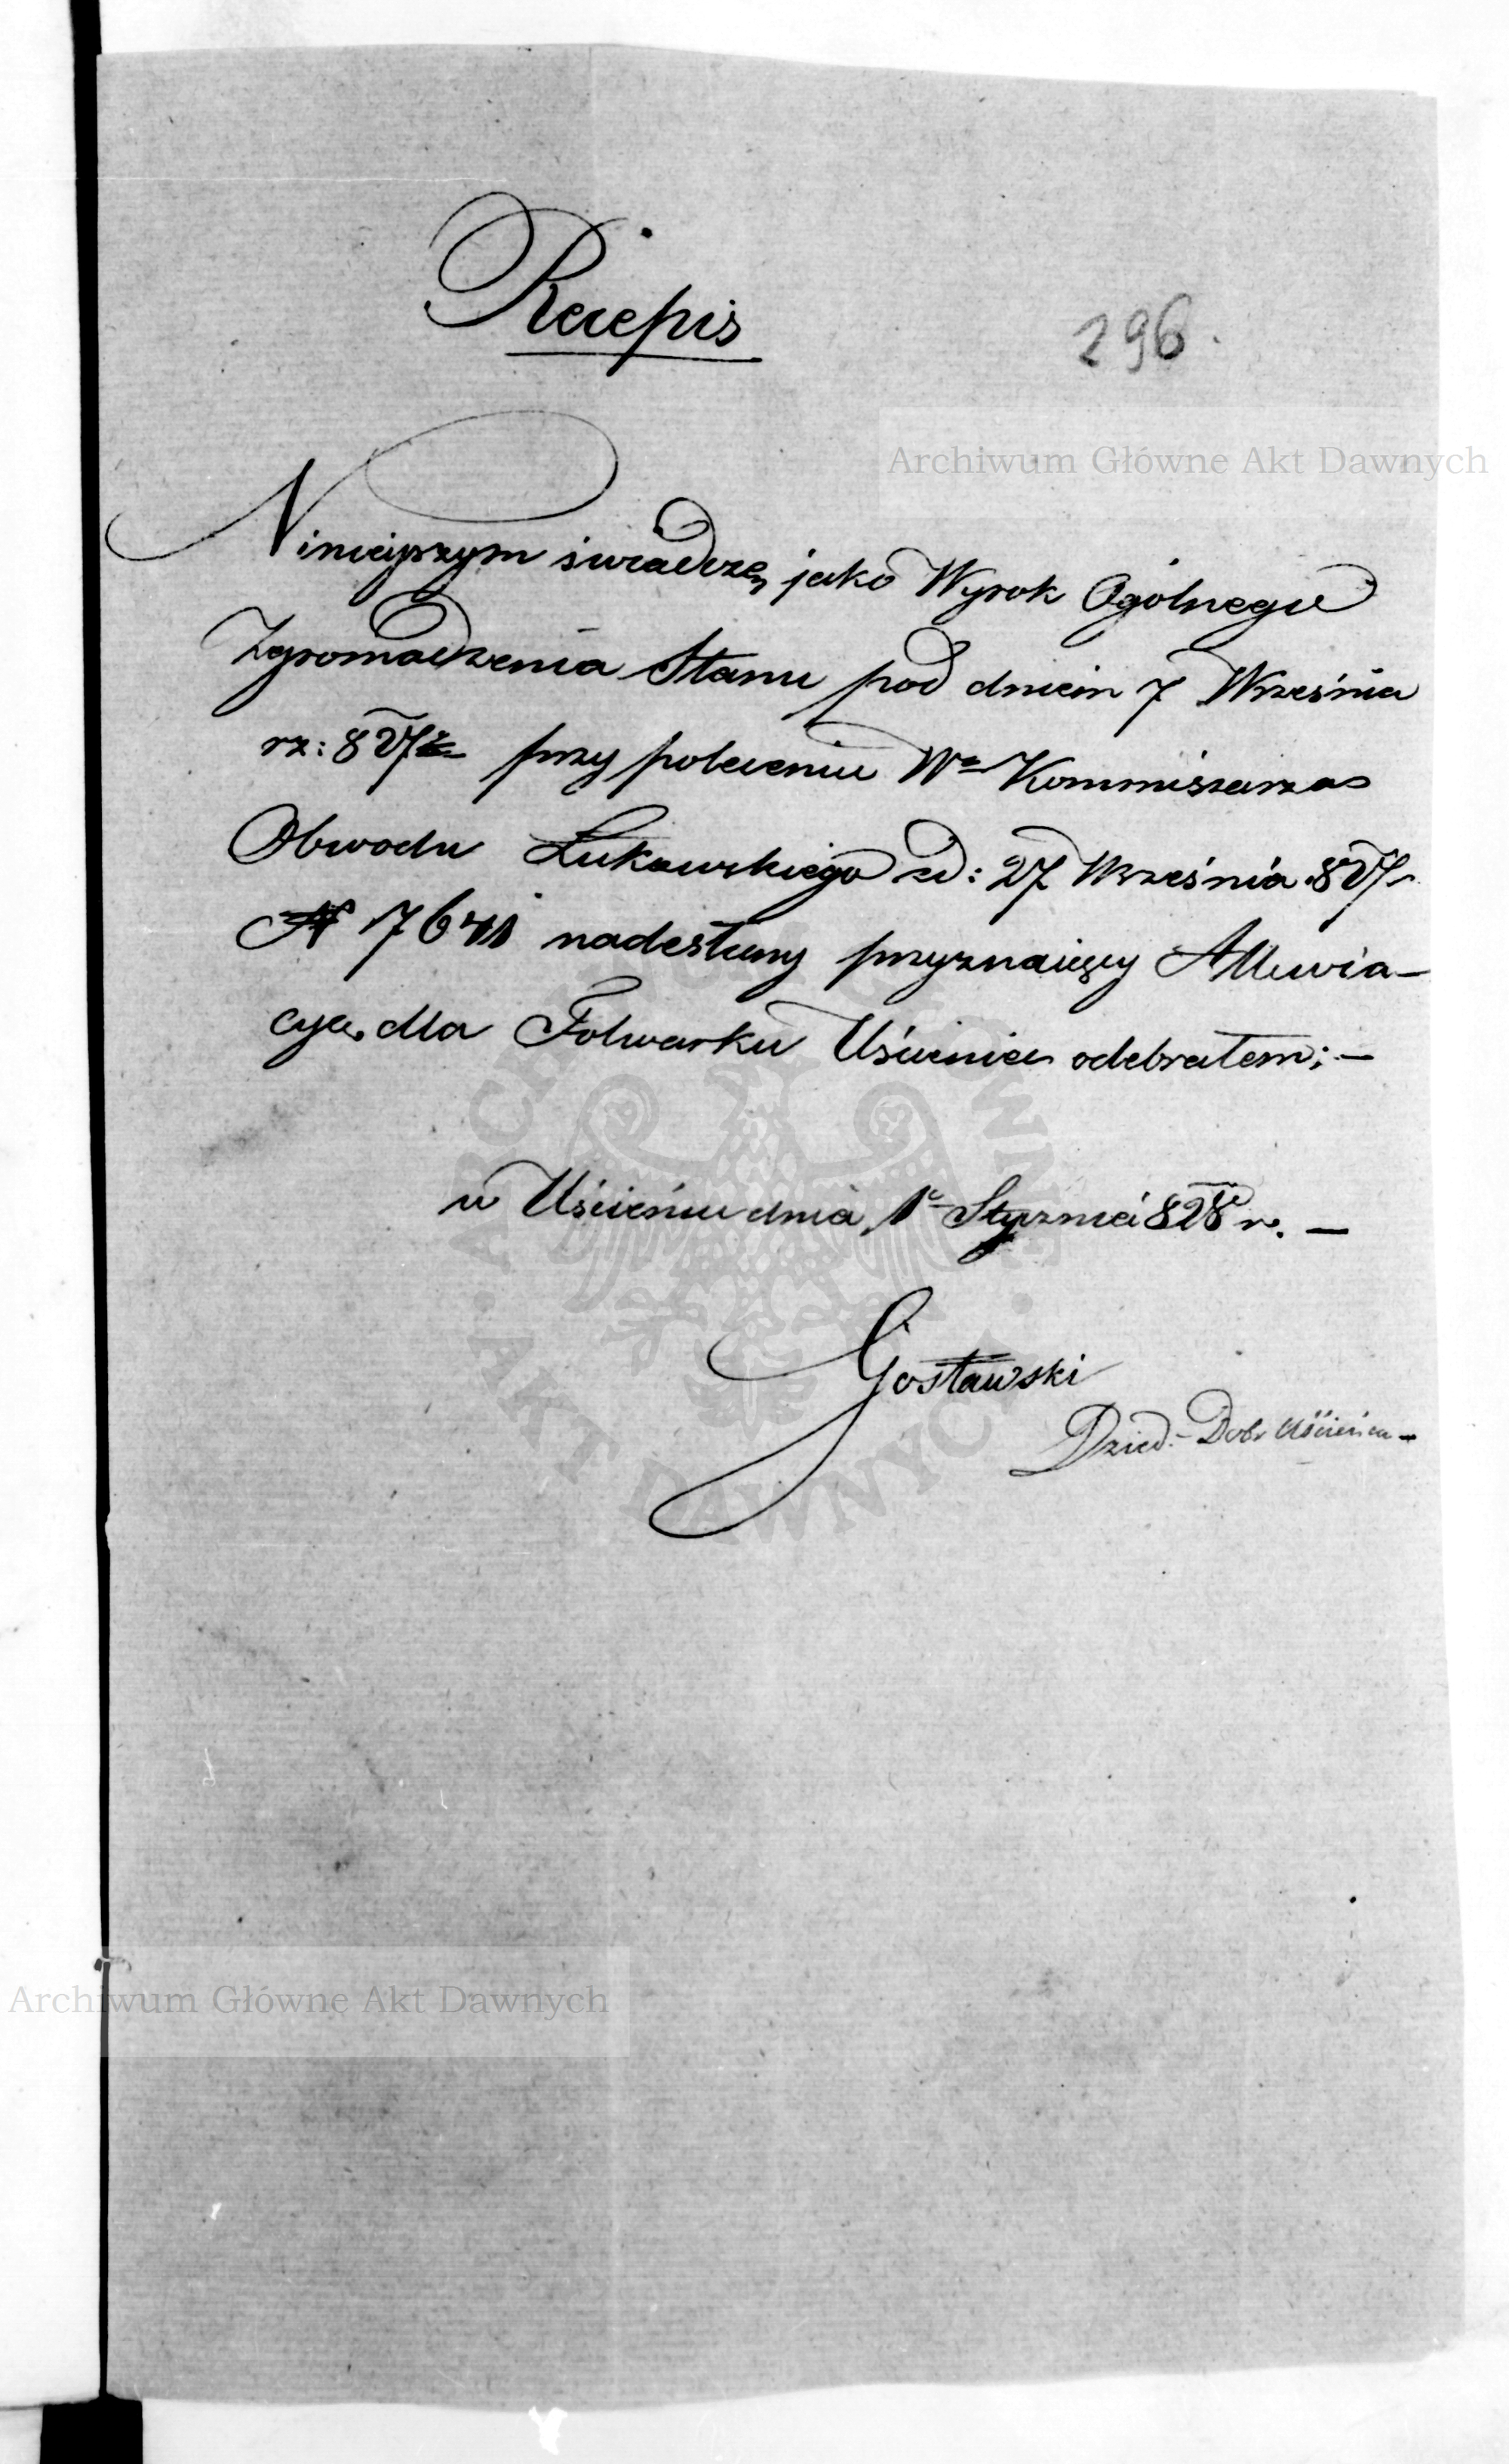 Recepis
296.
Archiwum Główne Akt Dawnych
Ninieyszym świadczę, jako Wyrok Ogólnego
Zgromadzenia Stanu pod dniem 7 Września
rz: 827 przy poleceniu Wº Kommissarza
Obwodu Łukowskiego zd: 27 Września 827
N 7641 nadesłany przyznaiący Allewia-
cyę, dla Folwarku Uścieniec odebrałem; —
w Uścieńcu dnia 1º Stycznia 828 r. —
Gosławski
Dzied: Dobr Uścieńca —
ARCHIWUM GŁÓWNE
AKT DAWNYCH
Archiwum Główne Akt Dawnych